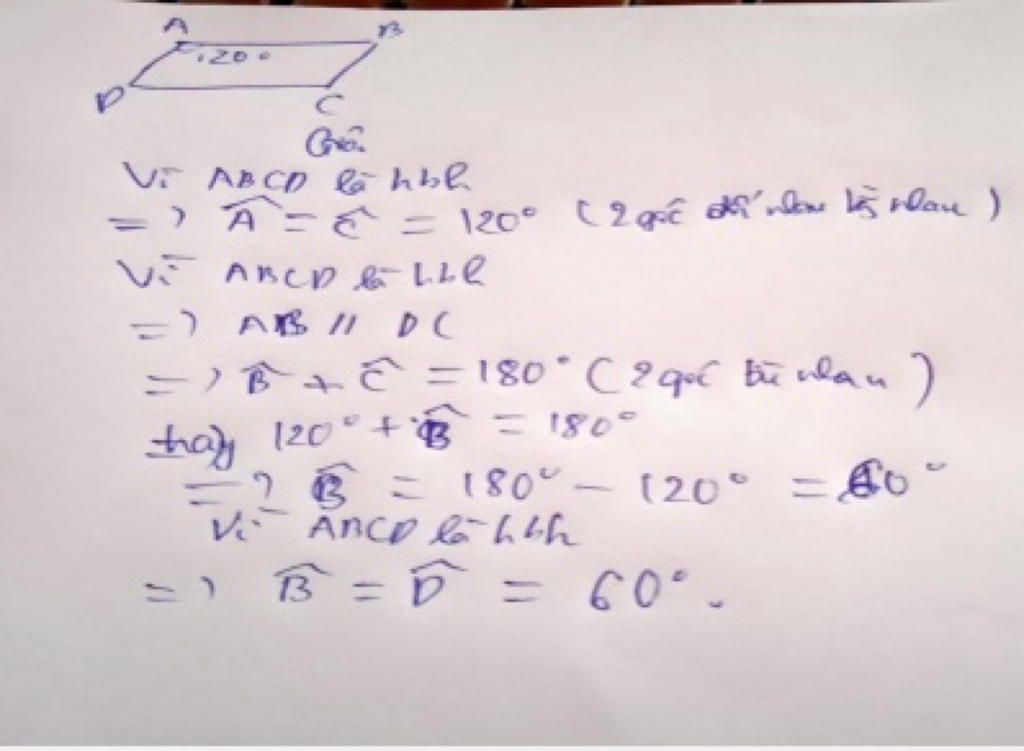 A B
120°
D C
Giải
Vì ABCD là hbh
=> Â = Ĉ = 120° (2 góc đối nhau bằng nhau)
Vì ABCD là hbh
=> AB // DC
=> B̂ + Ĉ = 180° (2 góc bù nhau)
hay 120° + B̂ = 180°
=> B̂ = 180° - 120° = 60°
Vì ABCD là hbh
=> B̂ = D̂ = 60°.